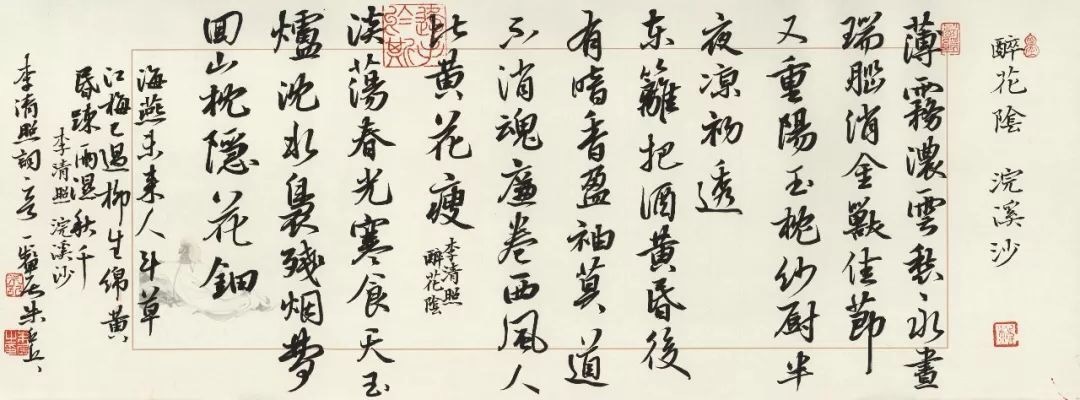 醉花陰 浣溪沙
薄霧濃雲愁永晝
瑞腦消金獸佳節
又重陽玉枕紗厨半
夜凉初透
东籬把酒黄昏後
有暗香盈袖莫道
不消魂廉卷西風人
比黄花瘦
李清照
醉花陰
淡蕩春光寒食天玉
爐沈水裊殘烟夢
回山枕隱花鈿
海燕未来人斗草
江梅已過柳生綿黄
昏疎雨濕秋千
李清照 浣溪沙
李清照詞二首